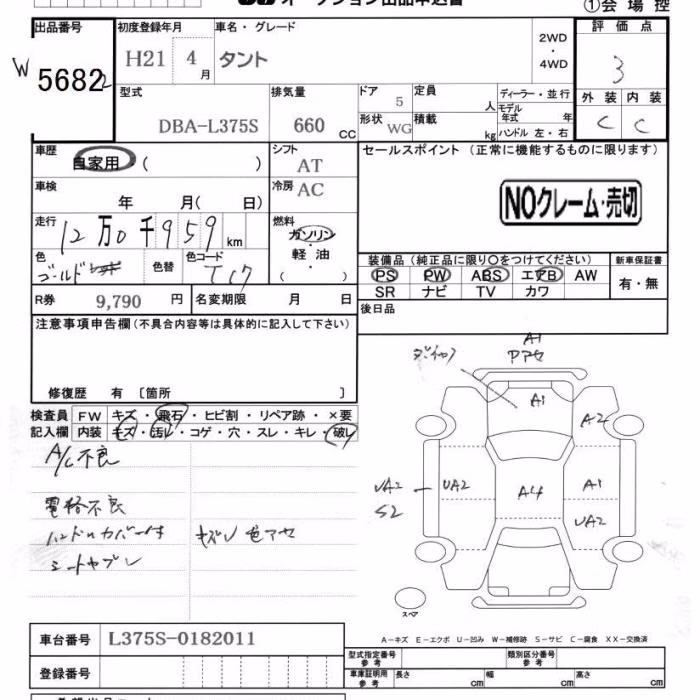 オークション出品申込書
①会場控
出品番号
5682
初度登録年月
H21 4 月
車名・グレード
タント
2WD
・
4WD
評価点
3
外装 内装
C C
型式
DBA-L375S
排気量
660 CC
ドア
5
形状
WG
定員
人
積載
kg
ディーラー・並行
モデル年式 年
ハンドル 左・右
車歴
自家用 ( )
シフト
AT
車検
年 月( 日)
冷房
AC
走行
12万0千959 km
燃料
ガソリン
・
軽油
( ・ )
色
ゴールド
色替
色コード
T17
R券 9,790 円
名変期限 月 日
セールスポイント (正常に機能するものに限ります)
NOクレーム・売切
装備品 (純正品に限り○をつけてください)
PS PW ABS エアB AW
SR ナビ TV カワ
新車保証書
有・無
後日品
注意事項申告欄(不具合内容等は具体的に記入して下さい)
修復歴 有 〔箇所 〕
検査員記入欄
FW キズ・飛石・ヒビ割・リペア跡・×要
内装 キズ・汚レ・コゲ・穴・スレ・キレ・破レ
A/C不良
電格不良
ハンドルカバー付 キズレ 色アセ
シートヤブレ
A1
アセ
A1
A2
UA2
S2
UA2
A4
A1
UA2
スペア
A-キズ E-エクボ U-凹み W-補修跡 S-サビ C-腐食 XX-交換済
車台番号 L375S-0182011
登録番号
型式指定番号
参考
類別区分番号
参考
車庫証明用
参考
長さ cm
幅 cm
高さ cm